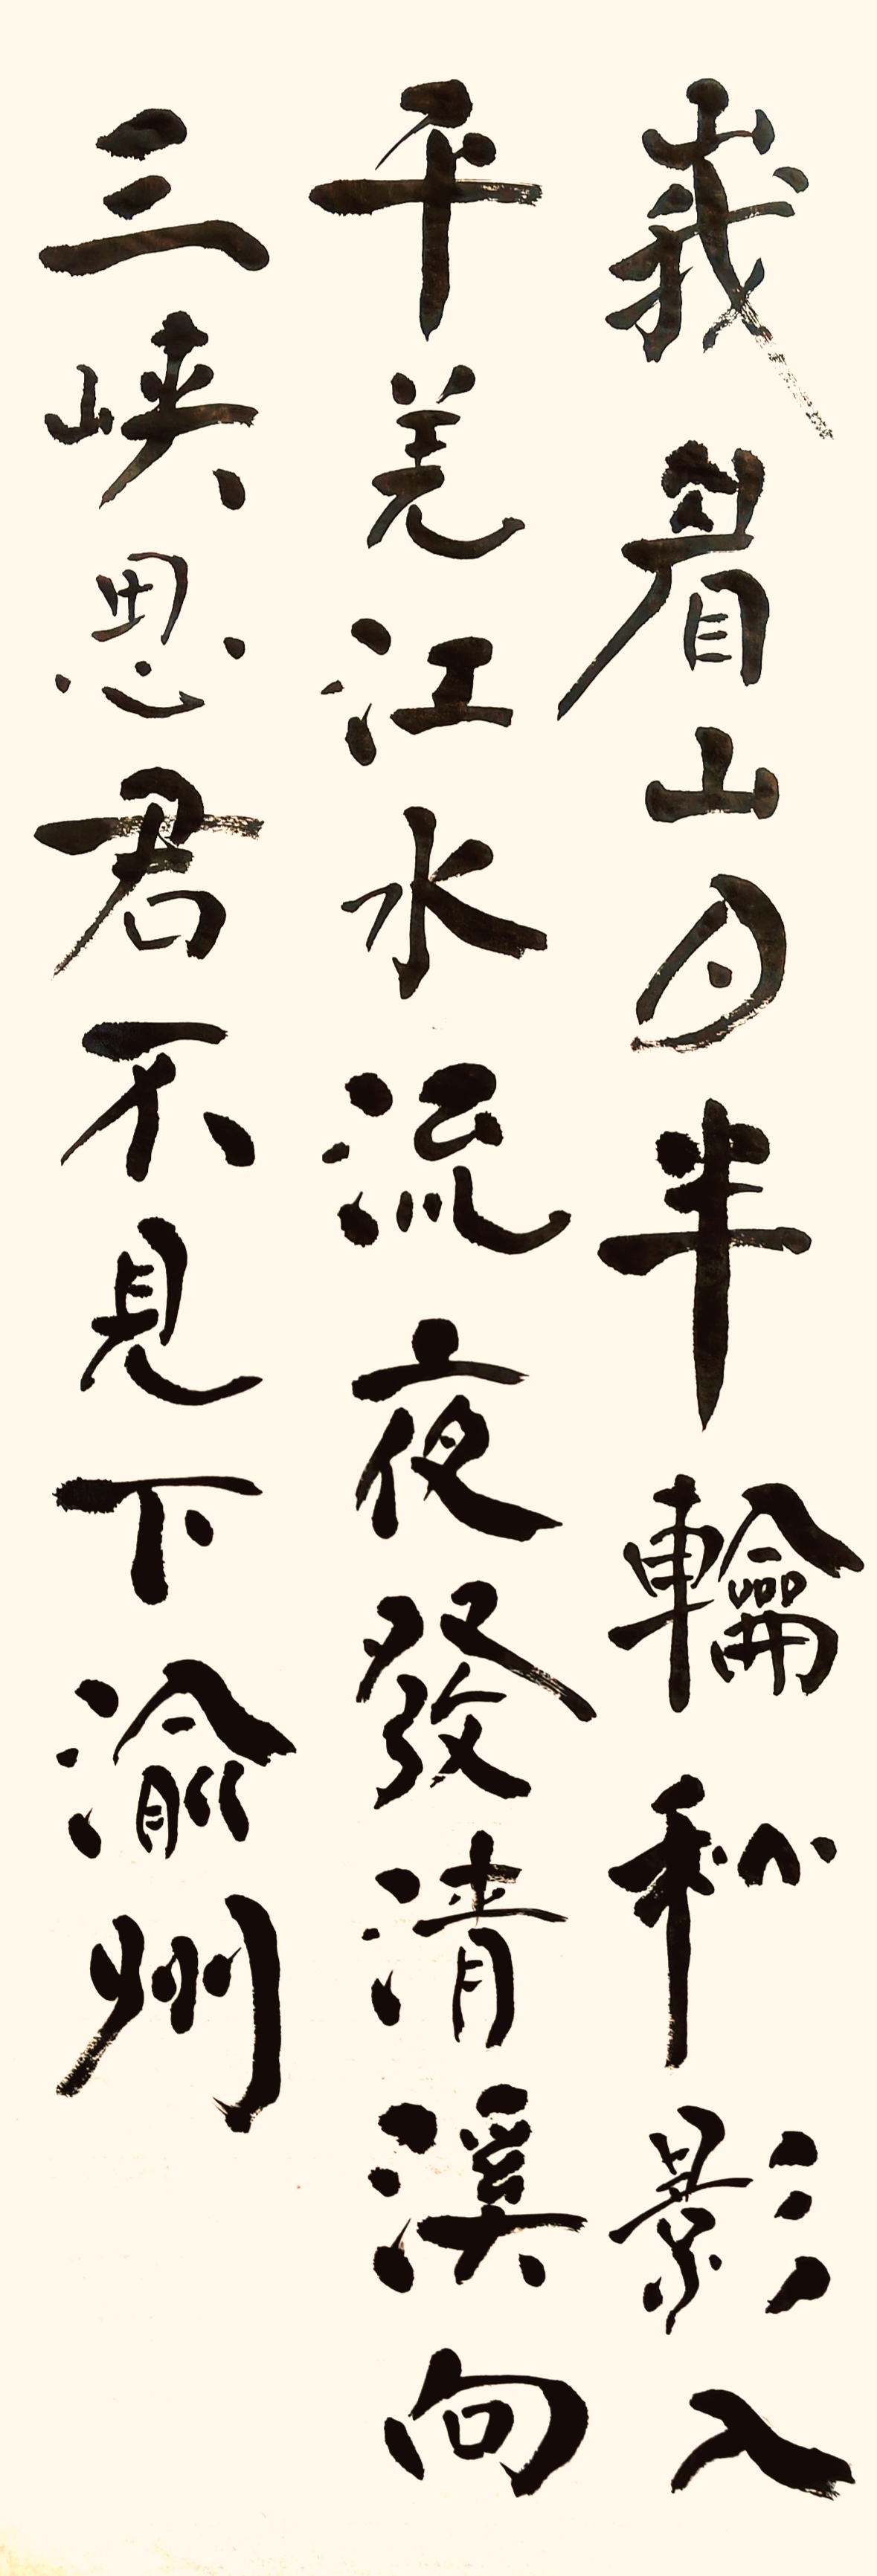 峨眉山月半輪秋影入
平羌江水流夜發清溪向
三峽思君不見下渝州